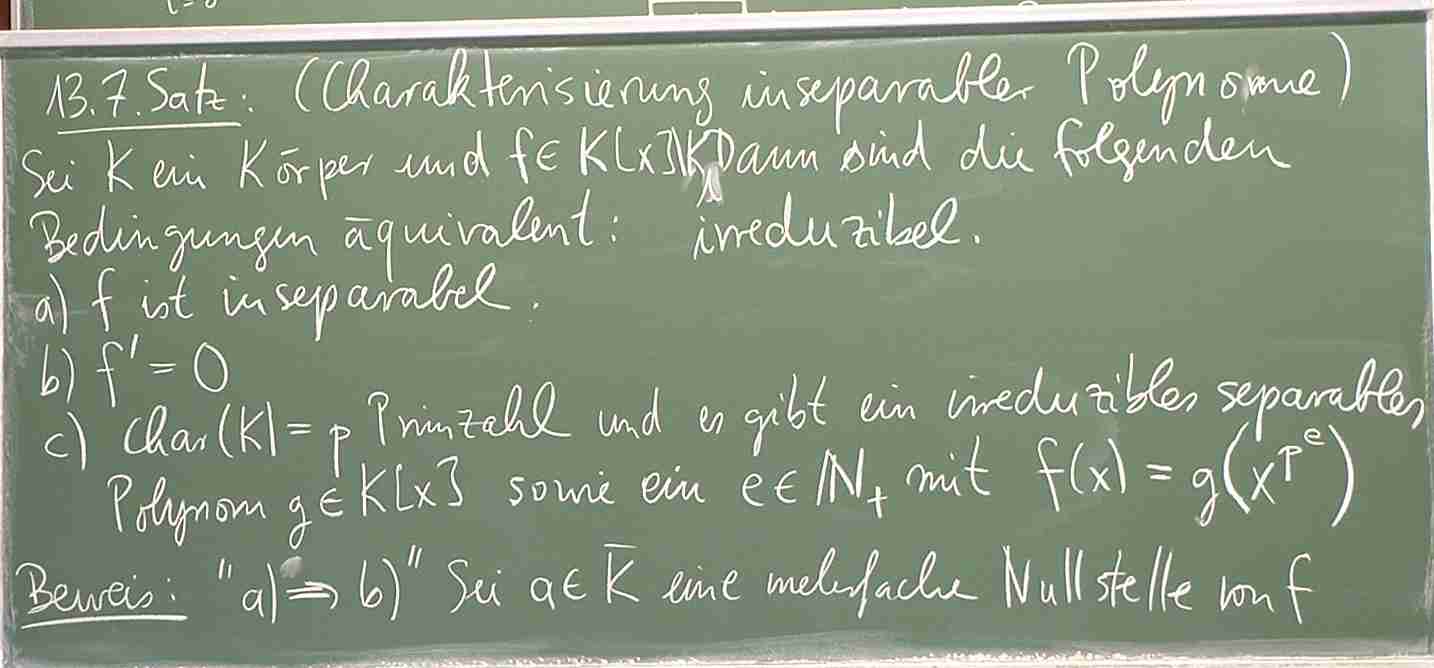 13.7. Satz: (Charakterisierung inseparabler Polynome)
Sei K ein Körper und f ∈ K[x]\K Dann sind die folgenden
Bedingungen äquivalent: irreduzibel.
a) f ist inseparabel.
b) f' = 0
c) Char(K) = p Primzahl und es gibt ein irreduzibles separables
Polynom g ∈ K[x] sowie ein e ∈ ℕ₊ mit f(x) = g(x^{p^e})
Beweis: "a) ⇒ b)" Sei a ∈ K̅ eine mehrfache Nullstelle von f